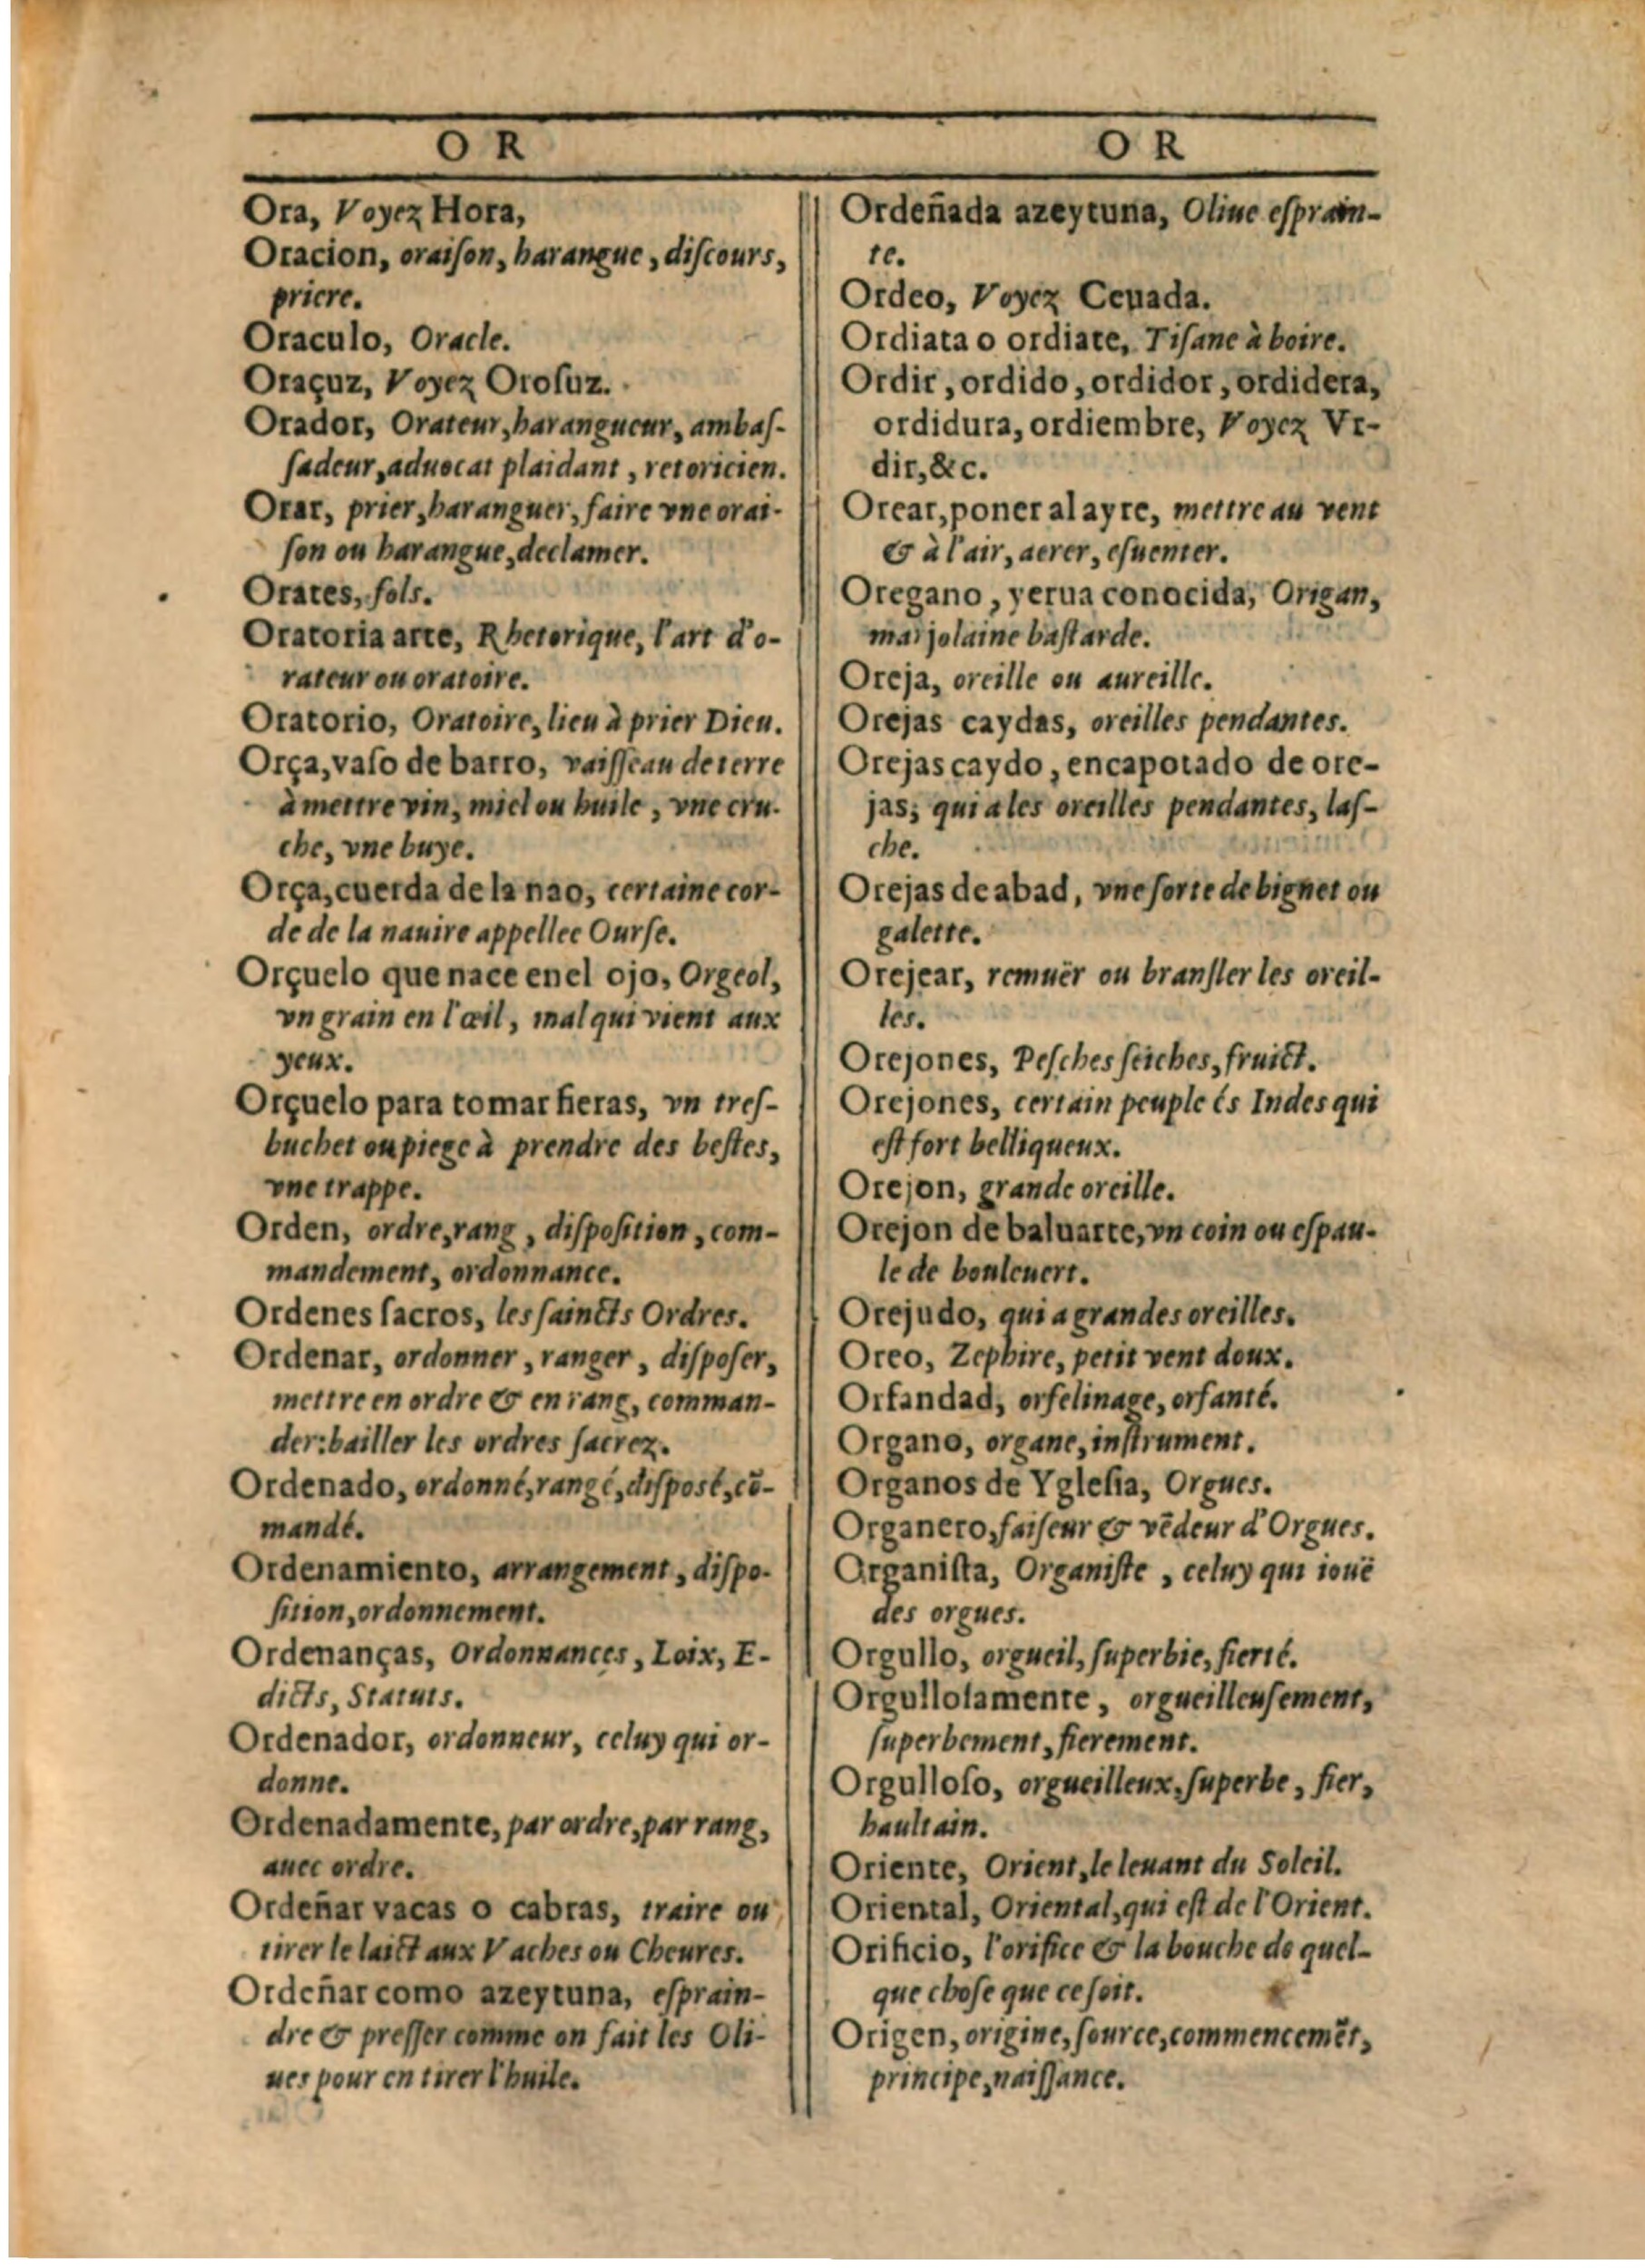 O R
Ora, Voyez Hora,
Oracion, oraiſon, harangue, diſcours,
priere.
Oraculo, Oracle.
Oraçuz, Voyez Oroſuz.
Orador, Orateur, harangueur, ambaſ-
ſadeur, aduocat plaidant, retoricien.
Orar, prier, haranguer, faire vne orai-
ſon ou harangue, declamer.
Orates, fols.
Oratoria arte, Rhetorique, l'art d'o-
rateur ou oratoire.
Oratorio, Oratoire, lieu à prier Dieu.
Orça, vaſo de barro, vaiſſeau de terre
à mettre vin, miel ou huile, vne cru-
che, vne buye.
Orça, cuerda de la nao, certaine cor-
de de la nauire appellee Ourſe.
Orçuelo que nace en el ojo, Orgeol,
vn grain en l'œil, mal qui vient aux
yeux.
Orçuelo para tomar fieras, vn treſ-
buchet ou piege à prendre des beſtes,
vne trappe.
Orden, ordre, rang, diſpoſition, com-
mandement, ordonnance.
Ordenes ſacros, les ſaincts Ordres.
Ordenar, ordonner, ranger, diſpoſer,
mettre en ordre & en rang, comman-
der: bailler les ordres ſacrez.
Ordenado, ordonné, rangé, diſposé, cō-
mandé.
Ordenamiento, arrangement, diſpo-
ſition, ordonnement.
Ordenanças, Ordonnances, Loix, E-
dicts, Statuts.
Ordenador, ordonneur, celuy qui or-
donne.
Ordenadamente, par ordre, par rang,
auec ordre.
Ordeñar vacas o cabras, traire ou
tirer le laict aux Vaches ou Cheures.
Ordeñar como azeytuna, eſprain-
dre & preſſer comme on fait les Oli-
ues pour en tirer l'huile.
O R
Ordeñada azeytuna, Oliue eſprain-
te.
Ordeo, Voyez Ceuada.
Ordiata o ordiate, Tiſane à boire.
Ordir, ordido, ordidor, ordidera,
ordidura, ordiembre, Voyez Vr-
dir, &c.
Orear, poner al ayre, mettre au vent
& à l'air, aerer, eſuenter.
Oregano, yerua conocida, Origan,
marjolaine baſtarde.
Oreja, oreille ou aureille.
Orejas caydas, oreilles pendantes.
Orejas caydo, encapotado de ore-
jas, qui a les oreilles pendantes, laſ-
che.
Orejas de abad, vne ſorte de bignet ou
galette.
Orejear, remuër ou branſler les oreil-
les.
Orejones, Peſches ſeiches, fruict.
Orejones, certain peuple és Indes qui
eſt fort belliqueux.
Orejon, grande oreille.
Orejon de baluarte, vn coin ou eſpau-
le de bouleuert.
Orejudo, qui a grandes oreilles.
Oreo, Zephire, petit vent doux.
Orfandad, orfelinage, orfanté.
Organo, organe, inſtrument.
Organos de Ygleſia, Orgues.
Organero, faiſeur & vēdeur d'Orgues.
Organiſta, Organiſte, celuy qui iouë
des orgues.
Orgullo, orgueil, ſuperbie, fierté.
Orgulloſamente, orgueilleuſement,
ſuperbement, fierement.
Orgulloſo, orgueilleux, ſuperbe, fier,
haultain.
Oriente, Orient, le leuant du Soleil.
Oriental, Oriental, qui eſt de l'Orient.
Orificio, l'orifice & la bouche de quel-
que choſe que ce ſoit.
Origen, origine, ſource, commencemēt,
principe, naiſſance.